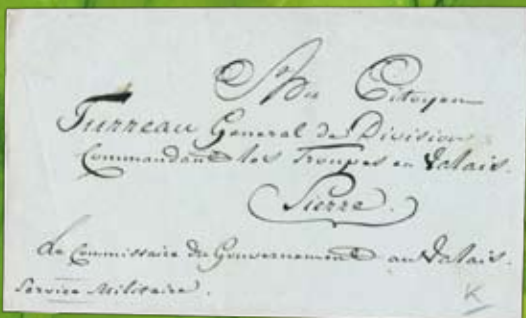 Au Citoyen
Turreau General de Division
Commandant les Troupes en Valais.
Sierre.
Le Commissaire du Gouvernement au Valais.
Service Militaire.
K